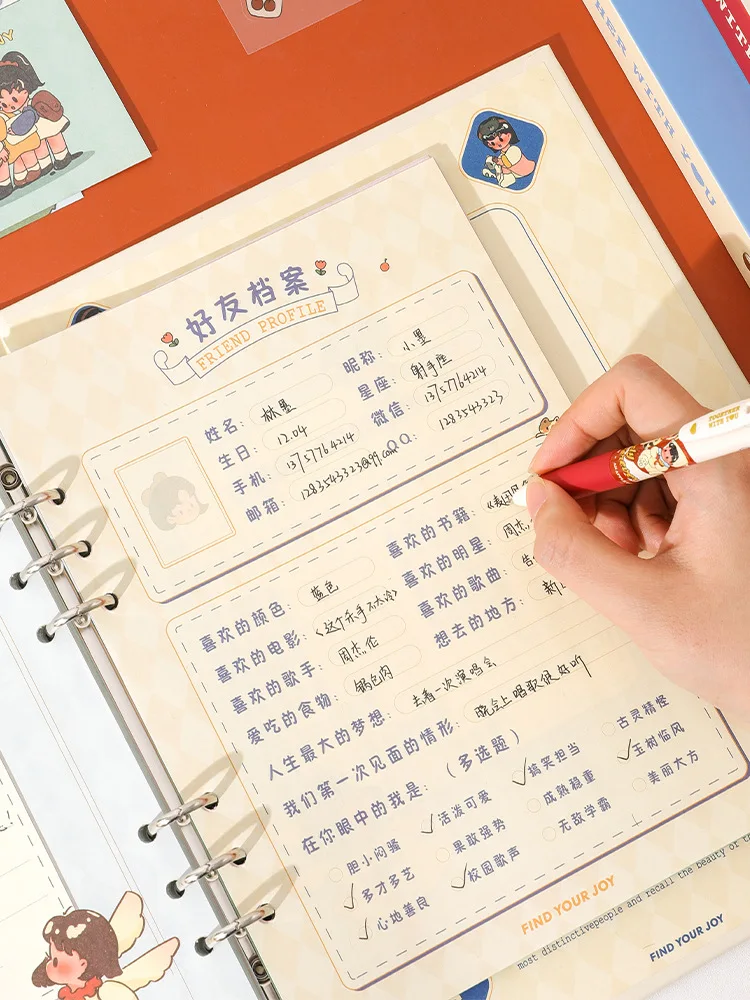 好友档案
FRIEND PROFILE
姓名: 林墨 昵称: 小墨
生日: 12.04 星座: 射手座
手机: 13757764214 微信: 13757764214
邮箱: 1283543323@qq.com QQ: 1283543323
喜欢的颜色: 蓝色 喜欢的书籍:
喜欢的电影: 《这个杀手不太冷》 喜欢的明星: 周杰
喜欢的歌手: 周杰伦 喜欢的歌曲: 告
爱吃的食物: 锅包肉 想去的地方: 新
人生最大的梦想: 去看一次演唱会
我们第一次见面的情形: 晚会上唱歌很好听
在你眼中的我是: (多选题)
胆小闷骚 活泼可爱 搞笑担当 古灵精怪
多才多艺 果敢强势 成熟稳重 玉树临风
心地善良 校园歌声 无敌学霸 美丽大方
FIND YOUR JOY
most distinctivepeople and recall the beauty of th
FIND YOUR JOY
TOGETHER
WITH YOU
HER WITH YOU
WITH